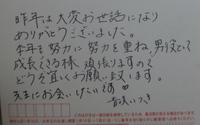 昨年は大変お世話になり
ありがとうございました。
本年も努力に努力を重ね、男役として
成長できる様、頑張りますので
どうぞ宜しくお願い致します。
先生にお会いしたい